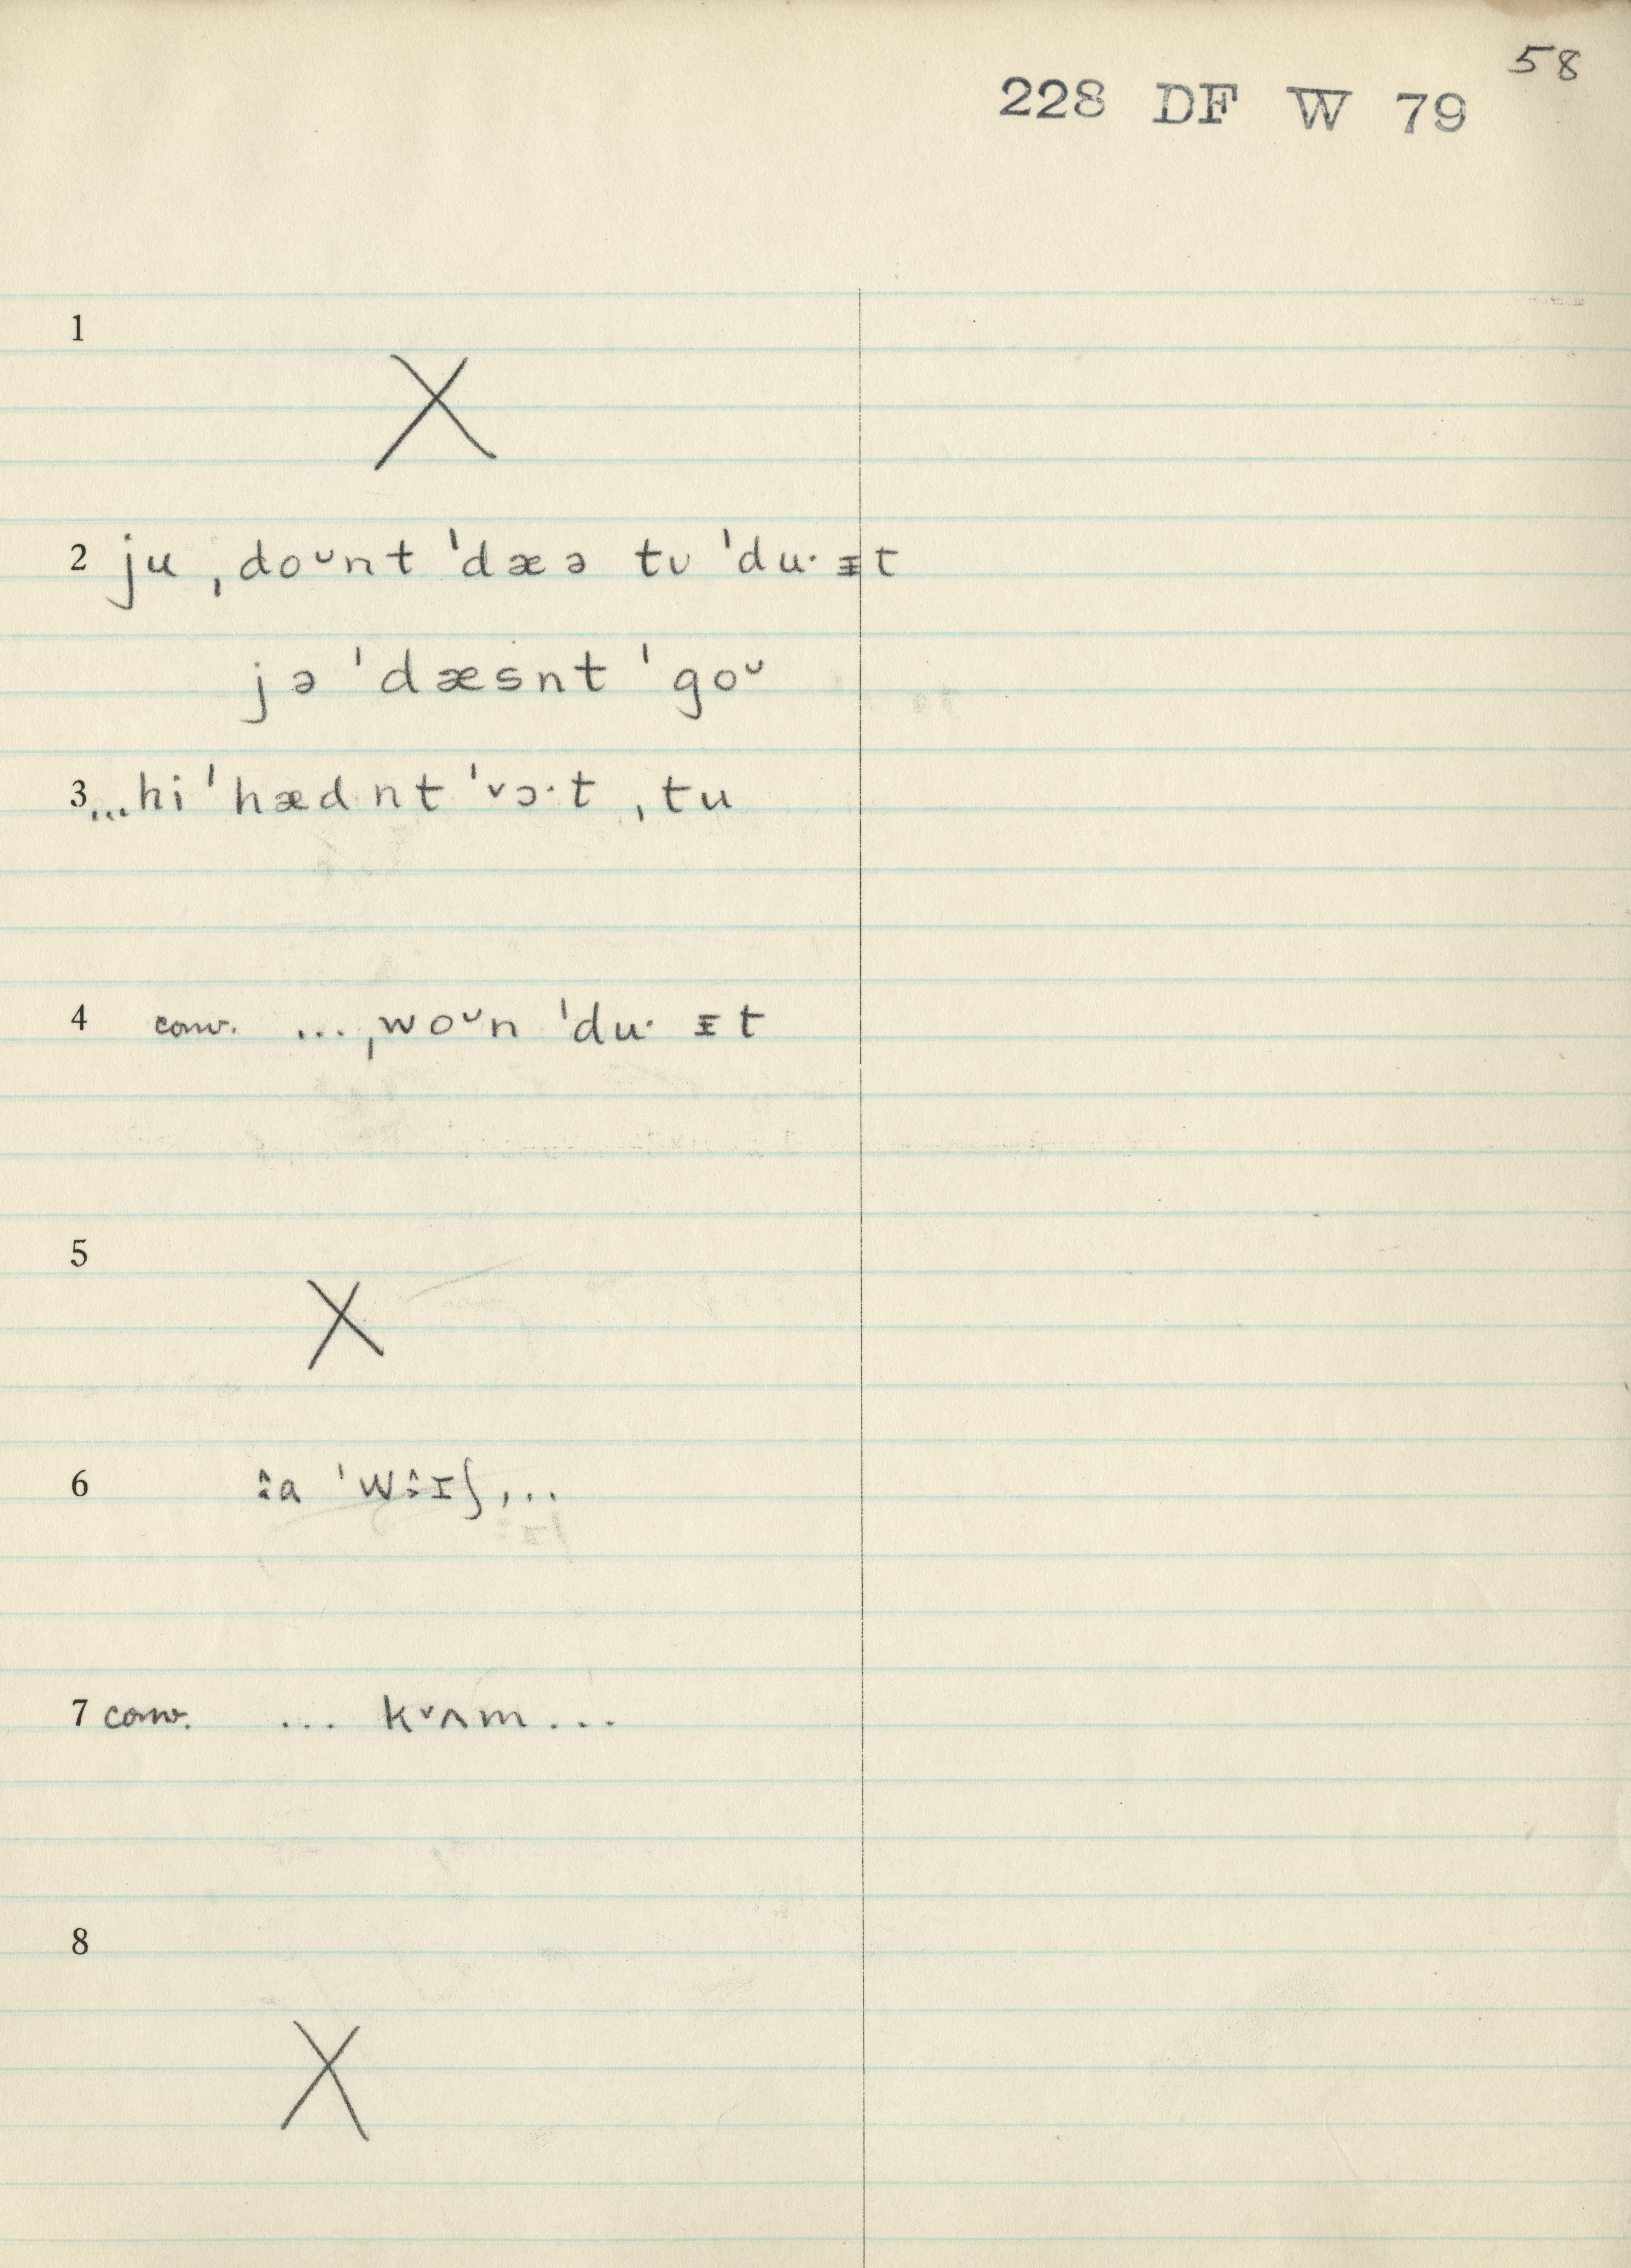 58
228 DF W 79
1
X
2 ju ˌdoᵕnt ˈdæə tʋ ˈduˑ ᵻt
jə ˈdæsnt ˈgoᵕ
3 ...hi ˈhædnt ˈᵛɔˑt ˌtu
4 conv. ... ˌwoᵕn ˈduˑ ᵻt
5
X
6
7 conv. ... kᵛʌm...
8
X